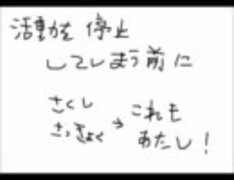 活動を停止
してしまう前に
さくし
さっきょく → これも
あたし!